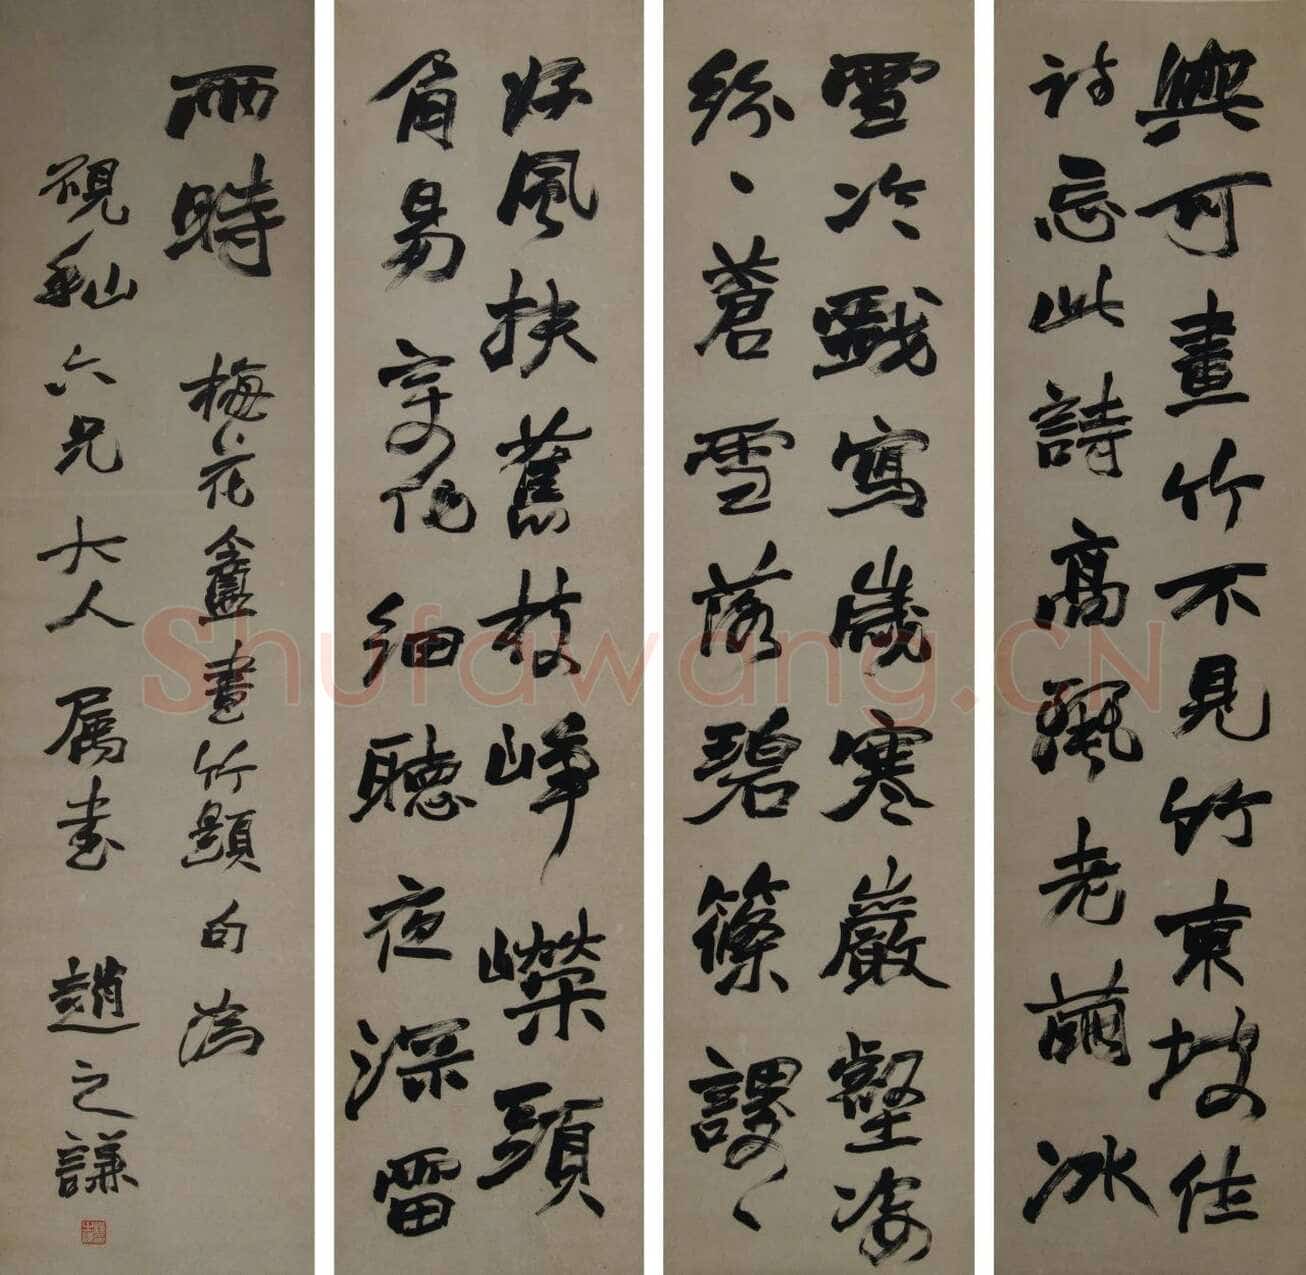 與可畫竹不見竹東坡作
詩忘此詩高老繭冰
雪冷戲寫歲寒巖壑姿
紛〻蒼雪落碧篠謖〻
好風扶舊枝崢嶸頭
角易變化細聽夜深雷
雨時 梅花盦畫竹題句為
硯秈六兄大人属書 趙之謙
Shufawang.CN